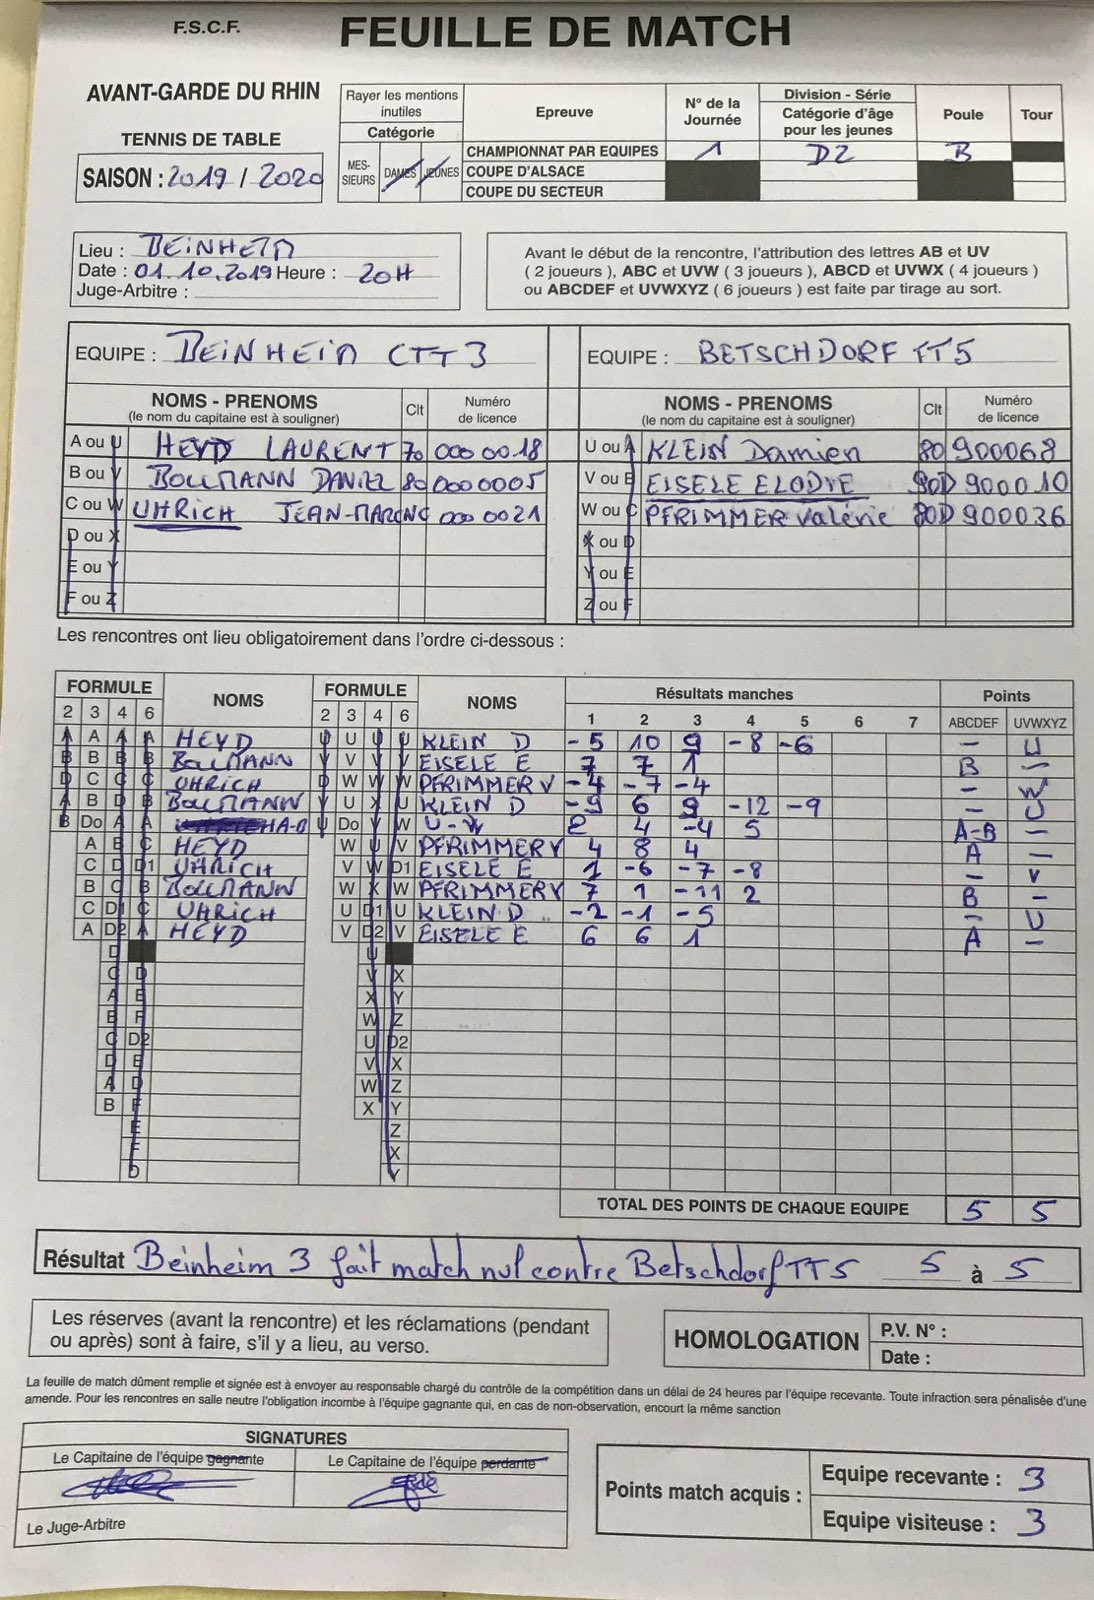 F.S.C.F.
FEUILLE DE MATCH
AVANT-GARDE DU RHIN
TENNIS DE TABLE
SAISON : 2019 / 2020
Rayer les mentions inutiles
Catégorie
MES-SIEURS DAMES JEUNES
Epreuve
N° de la Journée
Division - Série
Catégorie d'âge pour les jeunes
Poule
Tour
CHAMPIONNAT PAR EQUIPES 1 D2 B
COUPE D'ALSACE
COUPE DU SECTEUR
Lieu : BEINHEIM
Date : 01.10.2019 Heure : 20H
Juge-Arbitre :
Avant le début de la rencontre, l'attribution des lettres AB et UV
( 2 joueurs ), ABC et UVW ( 3 joueurs ), ABCD et UVWX ( 4 joueurs )
ou ABCDEF et UVWXYZ ( 6 joueurs ) est faite par tirage au sort.
EQUIPE : BEINHEIM CTT3
EQUIPE : BETSCHDORF TT5
NOMS - PRENOMS Clt Numéro de licence
(le nom du capitaine est à souligner)
NOMS - PRENOMS Clt Numéro de licence
(le nom du capitaine est à souligner)
A ou U HEYD LAURENT 70 0000018
U ou A KLEIN Damien 80 900068
B ou V BOLLMANN DANIEL 80 0000005
V ou B EISELE ELODIE 90D 900010
C ou W UHRICH JEAN-MARC NC 0000021
W ou C PFRIMMER Valérie 80D 900036
D ou X
X ou D
E ou Y
Y ou E
F ou Z
Z ou F
Les rencontres ont lieu obligatoirement dans l'ordre ci-dessous :
FORMULE NOMS FORMULE NOMS Résultats manches Points
2 3 4 6 2 3 4 6 1 2 3 4 5 6 7 ABCDEF UVWXYZ
A A A A HEYD U U U U KLEIN D -5 10 9 -8 -6 - U
B B B B BOLLMANN V V V V EISELE E 7 7 1 B -
D C C C UHRICH D W W W PFRIMMER V -4 -7 -4 - W
A B D B BOLLMANN V U X U KLEIN D -9 6 9 -12 -9 - U
B Do A A A-B U Do V W U-W 2 4 -4 5 A-B -
A B C HEYD W U V PFRIMMER V 4 8 4 A -
C D D1 UHRICH V W D1 EISELE E 1 -6 -7 -8 - V
B C B BOLLMANN W X W PFRIMMER V 7 1 -11 2 B -
C D1 C UHRICH U D1 U KLEIN D -2 -1 -5 - U
A D2 A HEYD V D2 V EISELE E 6 6 1 A -
D U
C D V X
A E X Y
B F W Z
C D2 U D2
D E V X
A D W Z
B F X Y
E Z
F X
D Y
TOTAL DES POINTS DE CHAQUE EQUIPE 5 5
Résultat Beinheim 3 fait match nul contre Betschdorf TT5 5 à 5
Les réserves (avant la rencontre) et les réclamations (pendant
ou après) sont à faire, s'il y a lieu, au verso.
HOMOLOGATION
P.V. N° :
Date :
La feuille de match dûment remplie et signée est à envoyer au responsable chargé du contrôle de la compétition dans un délai de 24 heures par l'équipe recevante. Toute infraction sera pénalisée d'une
amende. Pour les rencontres en salle neutre l'obligation incombe à l'équipe gagnante qui, en cas de non-observation, encourt la même sanction
SIGNATURES
Le Capitaine de l'équipe gagnante
Le Capitaine de l'équipe perdante
Le Juge-Arbitre
Points match acquis :
Equipe recevante : 3
Equipe visiteuse : 3